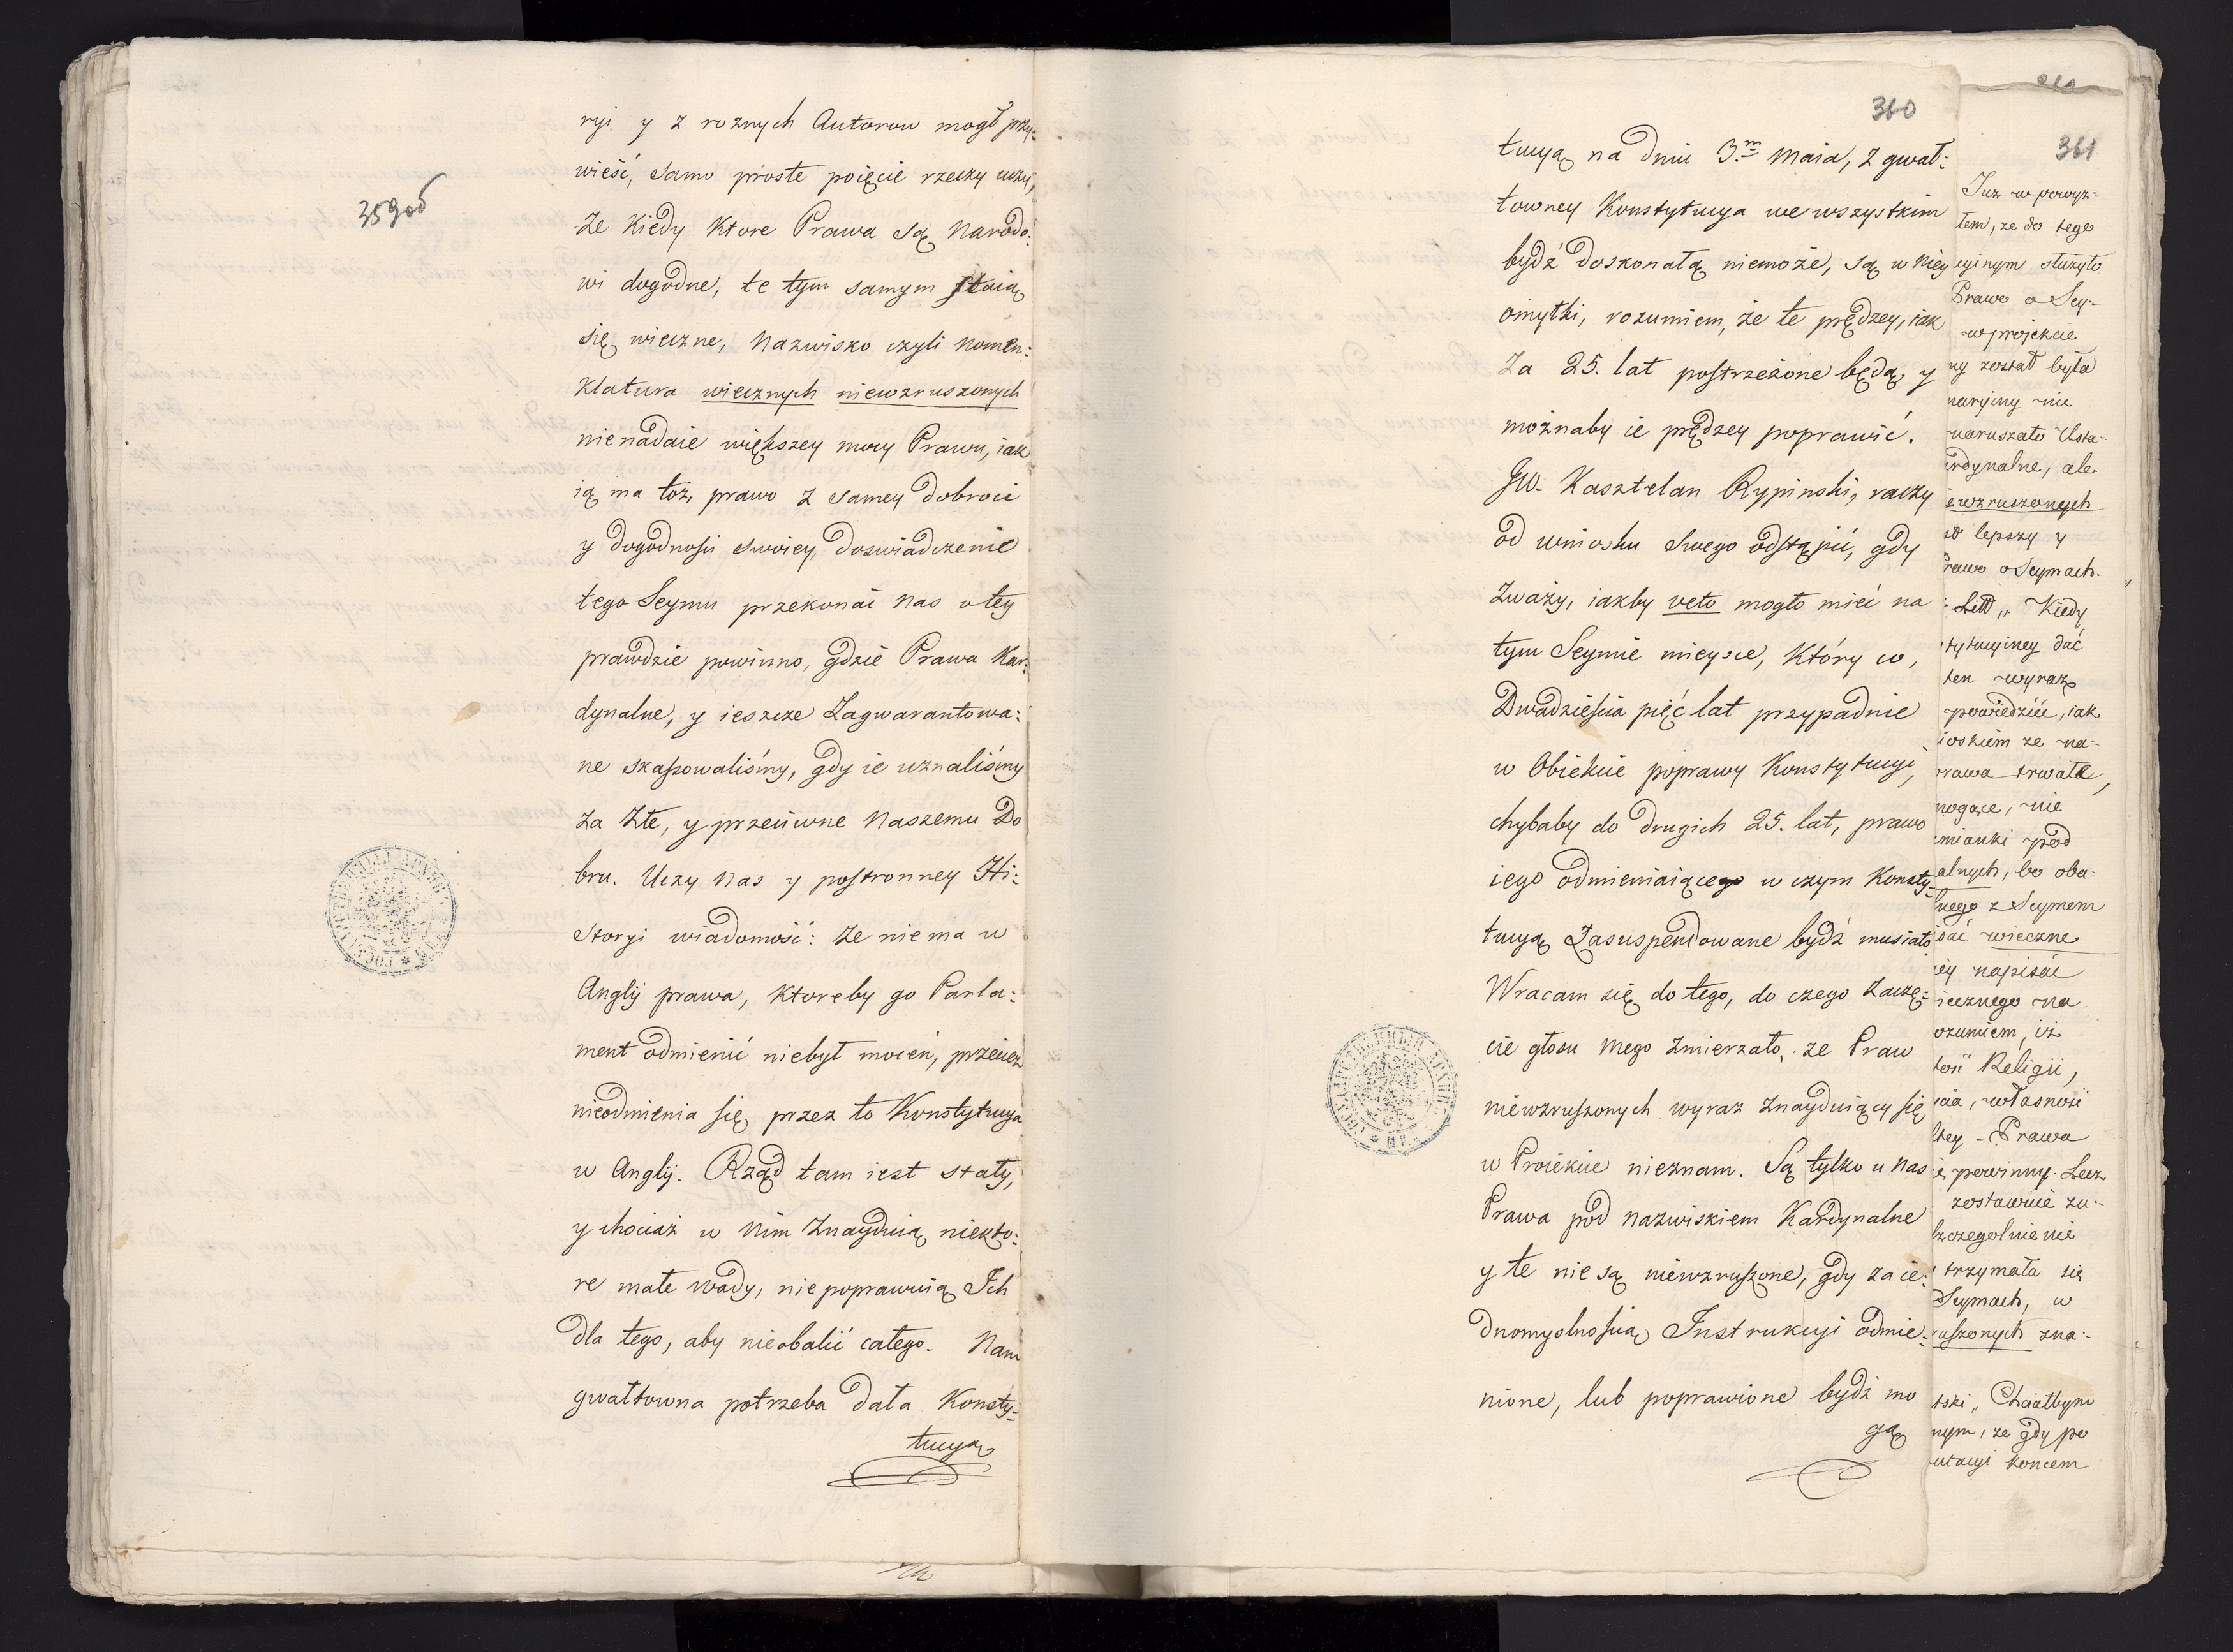 359об
ryi y z roznych Autorow mogł przy:
wieść, samo proste poięcie rzeczy uczy,
że kiedy ktore Prawa są Narodo:
wi dogodne, te tym samym staią
się wieczne, Nazwisko czyli Nomen:
klatura wiecznych niewzruszonych
nienadaie większey mocy Prawu, iak
ią ma toż, prawo z samey dobroci
y dogodności swoiey, doswiadczenie
tego Seymu przekonać nas o tey
prawdzie powinno, gdzie Prawa Kar:
dynalne, y ieszcze Zagwarantowa:
ne skassowaliśmy, gdy ie uznaliśmy
za złe, y przeciwne Naszemu Do
bru. Uczy nas y postronney Hi:
storyi wiadomość: że nie ma w
Anglij prawa, ktoreby go Parla:
ment odmienić niebył mocen, przecież
nieodmienia się przez to Konstytucya
w Anglij. Rząd tam iest stały,
y chociaż w nim znayduią niekto:
re małe wady, nie poprawuią Ich
dla tego, aby nieobalić całego. Nam
gwałtowna potrzeba dała Konsty:
tucyą
360
tucyą na dniu 3.m Maia, z gwał:
towney Konstytucya we wszystkim
bydź doskonałą niemoże, są w niey
omyłki, rozumiem, że te prędzey, iak
za 25. lat postrzeżone będą, y
możnaby ie prędzey poprawić.
JW. Kasztelan Rypinski, raczy
od wniosku swego odstąpić, gdy
zważy, iakby veto mogło mieć na
tym Seymie mieysce, który w
Dwadzieścia pięć lat przypadnie
w Obiekcie poprawy Konstytucyi,
chybaby do drugich 25. lat, prawo
iego odmieniaiącego w czym Konsty:
tucyą Zasuspendowane bydź musiało
Wracam się do tego, do czego zaczę:
cie głosu mego zmierzało, że Praw
niewzruszonych wyraz znayduiący się
w Proiekcie nieznam. Są tylko u nas
Prawa pod nazwiskiem Kardynalne
y te nie są niewzruszone, gdy za ie:
dnomyslnością Instrukcyi odmie:
nione, lub poprawione bydź mo
gą
361
Juz w powyz:
tem, ze do tego
cyinym służyło
Prawo o Sey:
w projekcie
ny został była
naryiny nie
naruszało Usta:
rdynalne, ale
ewzruszonych
lepszy y
rawo o Seymach.
Litt " Kiedy
stytucyiney dać
ten wyraz
powiedzieć, iak
ioskiem ze na:
prawa trwałe,
mogące, nie
mianki pod
alnych, bo oba:
nego z Seymem
sać wieczne
ey napisać
iecznego na
ozumiem, iż
łość Religii,
cia, własności
tey - Prawa
powinny. Lecz
zostawcie zu:
szczegolnienie
trzymała się
Seymach, w
ruszonych zna:
tski " Chciałbym
nym, ze gdy po
utacyi koncem